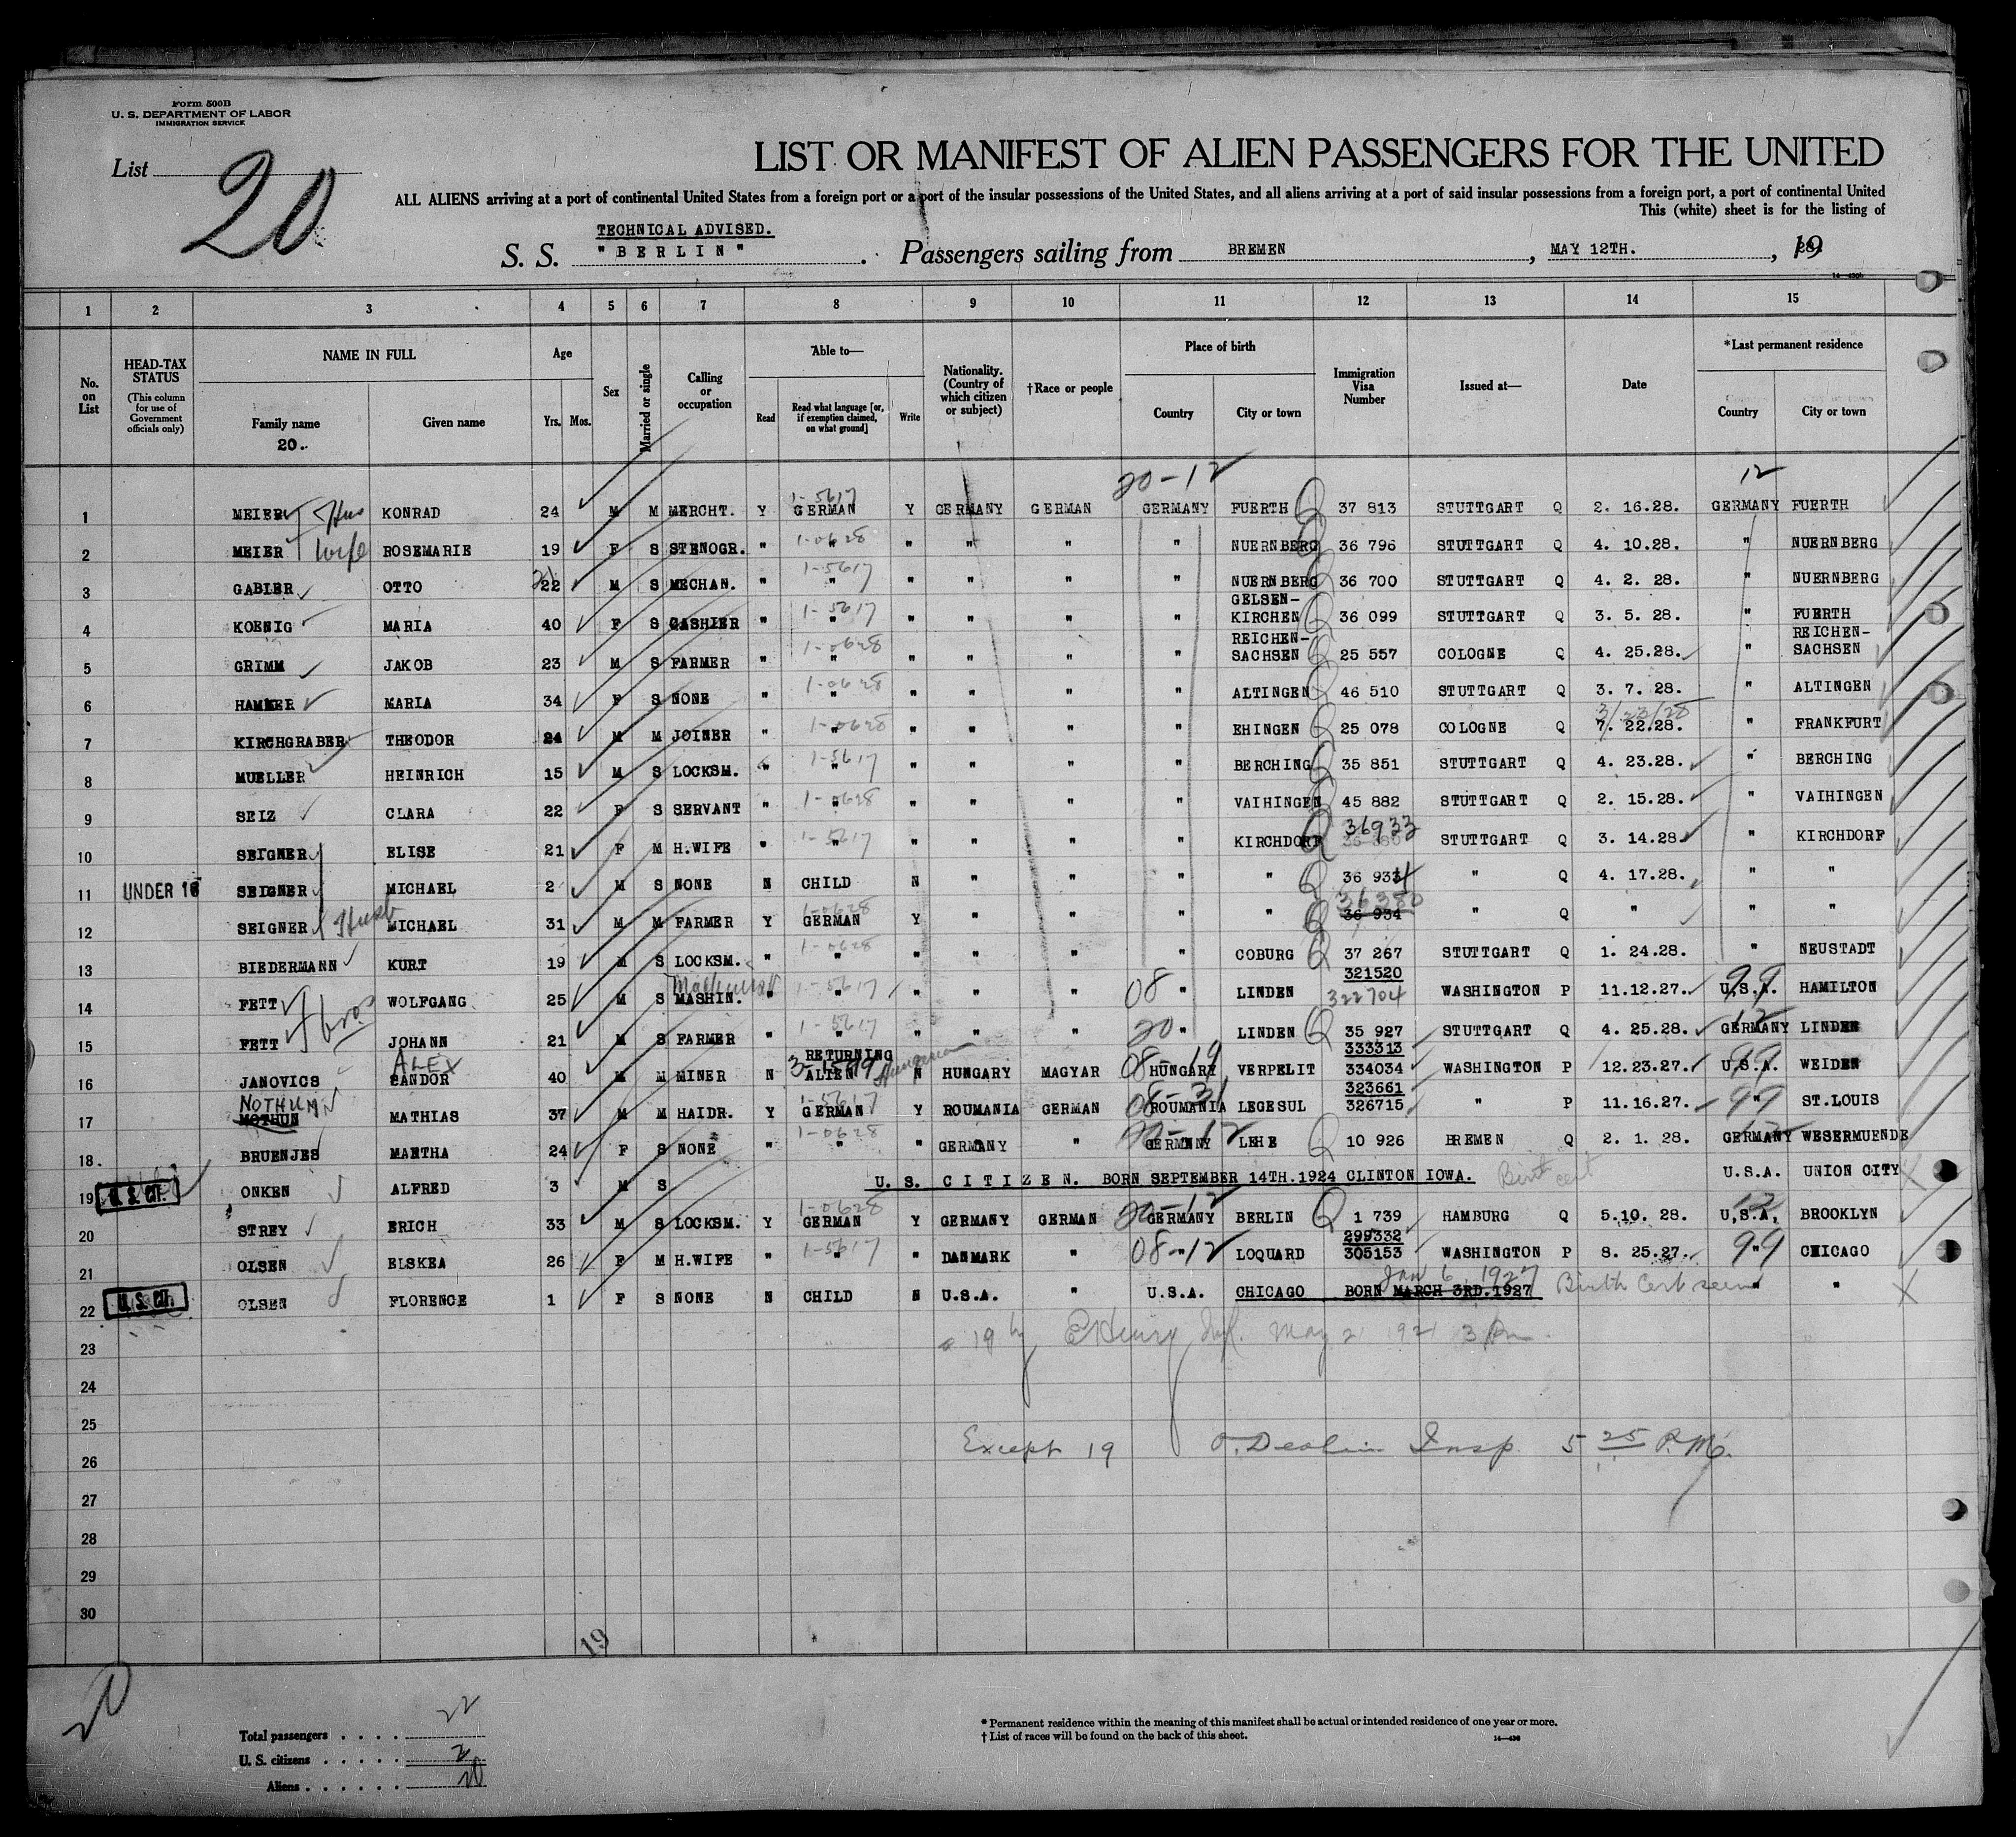 Form 500B
U. S. DEPARTMENT OF LABOR
IMMIGRATION SERVICE
List 20
LIST OR MANIFEST OF ALIEN PASSENGERS FOR THE UNITED
ALL ALIENS arriving at a port of continental United States from a foreign port or a port of the insular possessions of the United States, and all aliens arriving at a port of said insular possessions from a foreign port, a port of continental United
This (white) sheet is for the listing of
TECHNICAL ADVISED.
S. S. "BERLIN". Passengers sailing from BREMEN, MAY 12TH., 1928.
1 2 3 4 5 6 7 8 9 10 11 12 13 14 15
No. on List
HEAD-TAX STATUS
(This column for use of Government officials only)
NAME IN FULL
Family name
20.
Given name
Age
Yrs. Mos.
Sex
Married or single
Calling or occupation
Able to—
Read
Read what language [or, if exemption claimed, on what ground]
Write
Nationality. (Country of which citizen or subject)
†Race or people
Place of birth
Country
City or town
Immigration Visa Number
Issued at—
Date
*Last permanent residence
Country
City or town
20-12 12
1-5617
1 MEIER Hus KONRAD 24 M M MERCHT. Y GERMAN Y GERMANY GERMAN GERMANY FUERTH Q 37 813 STUTTGART Q 2. 16.28. GERMANY FUERTH
1-0628
2 MEIER wife ROSEMARIE 19 F S STENOGR. " " " " " " NUERNBERG Q 36 796 STUTTGART Q 4. 10.28. " NUERNBERG
1-5617
3 GABLER OTTO 22 M S MECHAN. " " " " " " NUERNBERG Q 36 700 STUTTGART Q 4. 2. 28. " NUERNBERG
1-5617
4 KOENIG MARIA 40 F S CASHIER " " " " " " GELSEN-KIRCHEN Q 36 099 STUTTGART Q 3. 5. 28. " FUERTH
1-0628
5 GRIMM JAKOB 23 M S FARMER " " " " " " REICHEN-SACHSEN Q 25 557 COLOGNE Q 4. 25.28. " REICHEN-SACHSEN
1-0628
6 HAMMER MARIA 34 F S NONE " " " " " " ALTINGEN Q 46 510 STUTTGART Q 3. 7. 28. " ALTINGEN
1-0628 3/23/28
7 KIRCHGRABER THEODOR 24 M M JOINER " " " " " " EHINGEN Q 25 078 COLOGNE Q 7. 22.28. " FRANKFURT
1-5617
8 MUELLER HEINRICH 15 M S LOCKSM. " " " " " " BERCHING Q 35 851 STUTTGART Q 4. 23.28. " BERCHING
1-0628
9 SEIZ CLARA 22 F S SERVANT " " " " " " VAIHINGEN Q 45 882 STUTTGART Q 2. 15.28. " VAIHINGEN
1-5617
10 SEIGNER ELISE 21 F M H.WIFE " " " " " " KIRCHDORF Q 36933 STUTTGART Q 3. 14.28. " KIRCHDORF
11 UNDER 16 SEIGNER MICHAEL 2 M S NONE N CHILD N " " " " Q 36 934 " Q 4. 17.28. " "
1-0628 36380
12 SEIGNER Husb MICHAEL 31 M M FARMER Y GERMAN Y " " " " Q 36 934 " Q " " "
1-0628
13 BIEDERMANN KURT 19 M S LOCKSM. " " " " " " COBURG Q 37 267 STUTTGART Q 1. 24.28. " NEUSTADT
Machinist 1-5617 321520 99
14 FETT bros WOLFGANG 25 M S MASHIN. " " " " " 08 " LINDEN 322704 WASHINGTON P 11.12.27. U.S.A. HAMILTON
1-5617 12
15 FETT JOHANN 21 M S FARMER " " " " " 20 " LINDEN Q 35 927 STUTTGART Q 4. 25.28. GERMANY LINDEN
ALEX RETURNING 3-1519 Hungarian 08-19 333313 99
16 JANOVICS SANDOR 40 M M MINER N ALIEN N HUNGARY MAGYAR HUNGARY VERPELIT 334034 WASHINGTON P 12.23.27. U.S.A. WEIDEN
NOTHUMN 1-5617 08-31 323661 99
17 MOTHUN MATHIAS 37 M M HAIDR. Y GERMAN Y ROUMANIA GERMAN ROUMANIA LEGESUL 326715 " P 11.16.27. " ST.LOUIS
1-0628 20-12 12
18. BRUENJES MARTHA 24 F S NONE " " " GERMANY " GERMANY LEHE Q 10 926 BREMEN Q 2. 1. 28. GERMANY WESERMUENDE
19 U.S. CIT. ONKEN ALFRED 3 M S U. S. CITIZEN. BORN SEPTEMBER 14TH.1924 CLINTON IOWA. Birth cert U.S.A. UNION CITY
1-0628 20-12 12
20 STREY ERICH 33 M S LOCKSM. Y GERMAN Y GERMANY GERMAN GERMANY BERLIN Q 1 739 HAMBURG Q 5.10. 28. U.S.A. BROOKLYN
1-5617 299332 99
21 OLSEN ELSKEA 26 F M H.WIFE " " " DANMARK " 08-12 " LOQUARD 305153 WASHINGTON P 8. 25.27. " CHICAGO
Jan 6, 1927
22 U.S. CIT. OLSEN FLORENCE 1 F S NONE N CHILD N U.S.A. " U.S.A. CHICAGO BORN MARCH 3RD.1927 Birth Cert seen " "
23
24
25
26 Except 19 Insp 5 25 P.M.
27
28
29
30
19
20
Total passengers . . . . 22
U. S. citizens . . . . . 2
Aliens . . . . . . 20
* Permanent residence within the meaning of this manifest shall be actual or intended residence of one year or more.
† List of races will be found on the back of this sheet.